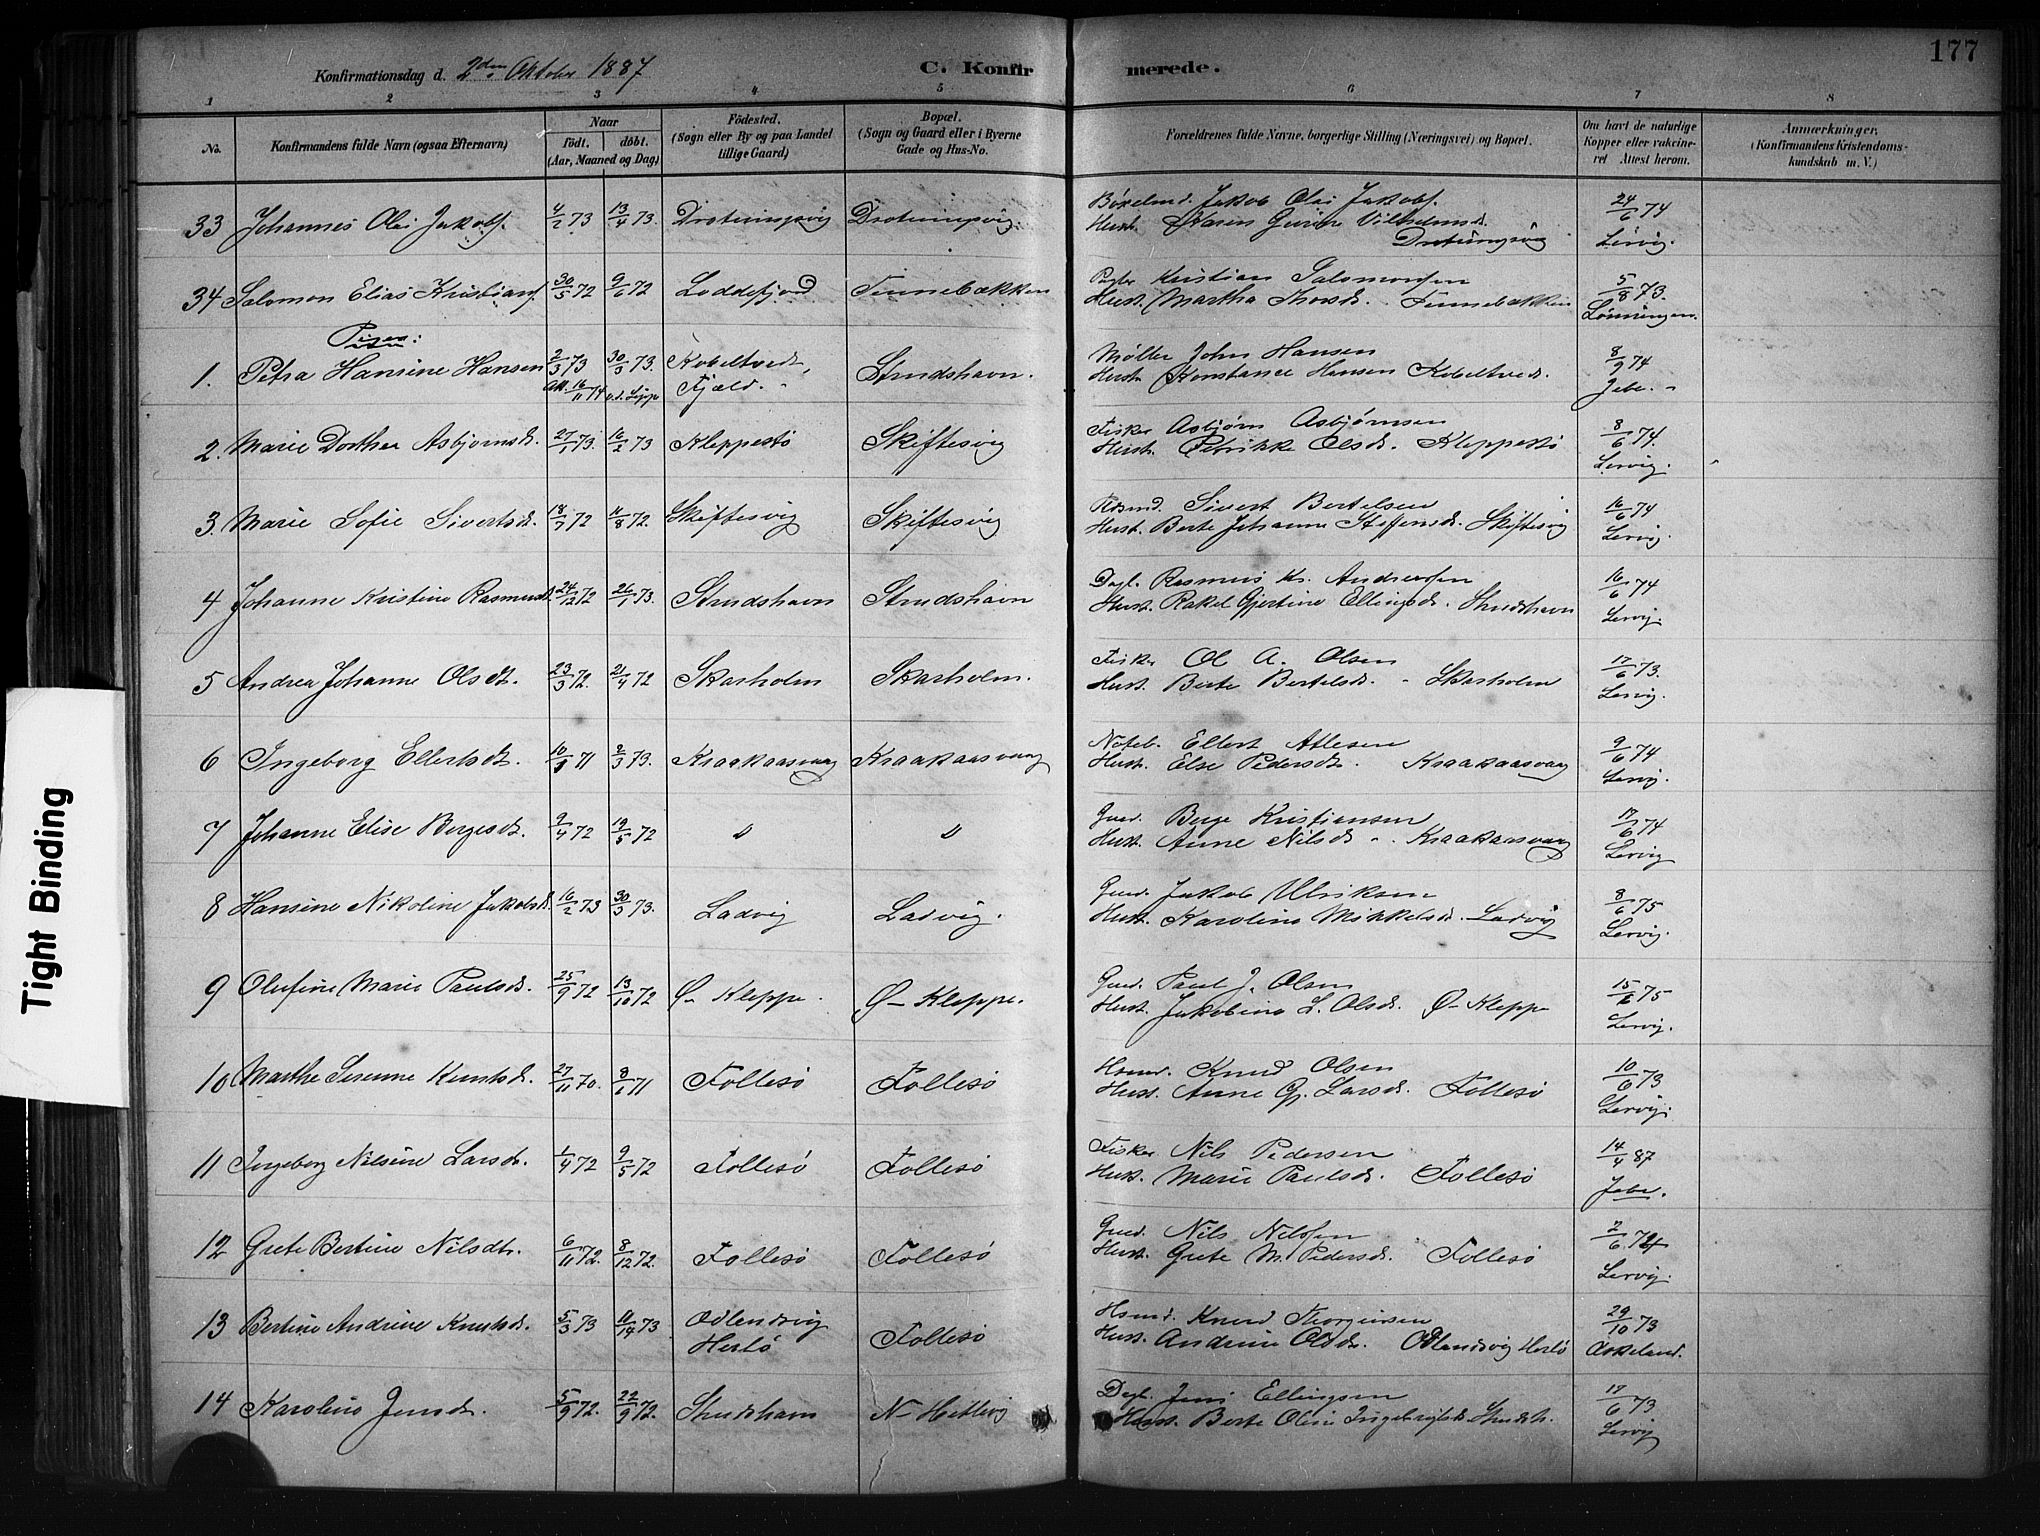 177
Konfirmationsdag d. 2den Oktober 1887 C. Konfirmerede.
1 2 3 4 5 6 7 8
No. Konfirmandens fulde Navn (ogsaa Efternavn) Naar født. døbt. (Aar, Maaned og Dag) Födested. (Sogn eller By og paa Landet tillige Gaard) Bopæl. (Sogn og Gaard eller i Byerne Gade og Hus-No. Forældrenes fulde Navne, borgerlige Stilling (Næringsvei) og Bopæl. Om havt de naturlige Kopper eller vakcineret Attest herom. Anmærkninger. (Konfirmandens Kristendomskundskab m. V.)
33 Johannes Olai Jakobs. 4/2 73 13/4 73. Drotningsvig Drotningsvig. Jakob Olai Jakobs. 24/6 74
Hust. Karen Vilhelmsd. Drotningsvig Lervig.
34 Salomon Elias Kristians. 30/5 72 9/6 72 Loddefjord Tennebækken Kristian Salomonsen 5/8 73.
Hust. Martha Tennebækken Lønningen.
Piger:
1. Petra Hansine Hansen 2/3 73 30/3 73. Kobeltvedt, Fjæld. Strudshavn. Møller John Hansen 8/9 74
Att. 16/11 74 Hust. Konstance Hansen Kobeltvedt. Jebe.
2. Marie Dorthea Asbjørnsd. 27/1 73. 16/2 73 Kleppestø Skiftesvig Fisker Asbjørn Asbjørnsen 8/6 74.
Hust. Petrikke Olsd. Kleppestø Lervig.
3. Marie Sofie Sivertsd. 18/7 72 11/8 72. Skiftesvig Skiftesvig Sivert Bertelsen 16/6 74
Hust. Berte Johanne Steffensd. Skiftesvig Lervig.
4 Johanne Kristine Rasmusd. 24/12 72 26/1 73. Strudshavn Strudshavn Dagl. Rasmus Kr. Andreassen 16/6 74
Hust. Rakel Gjertine Ellingsd. Strudshavn Lervig.
5 Andrea Johanne Olsdt. 23/3 72. 21/4 72 Skarholm Skarholm. Fisker Ol A. Olsen 17/6 73.
Hust. Berte Bertelsd. Skarholm Lervig.
6 Ingeborg Ellertsdt. 71 2/3 73. Kraakaasvaag Kraakaasvaag Ellert Atlesen 9/6 74
Hust. Else Pedersdt. Kraakaasvaag Lervig.
7 Johanne Elise Borgesdt. 9/4 72 19/5 72 " " Gaard. Børge Kristiansen 17/6 74
Hust. Anne Nilsd. Kraakaasvaag Lervig
8 Hansine Nikoline Jakobsd. 16/2 73 30/3 73. Ladvig Ladvig. Gaard. Jakob Ulriksen 8/6 75
Hust. Karoline Mikkelsd. Ladvig Lervig.
9 Olufine Marie Paulsd. 25/9 72 13/10 72 Ø- Kleppe. Ø- Kleppe. Gaard. Paul J. Olsen 15/6 75
Hust. Jakobine L. Olsd. Ø- Kleppe Lervig.
10 Marthe Serenne Knutsd. 27/11 70. 8/1 71 Follesø Follesø Husmd. Knud Olsen 10/6 73
Hust. Anne Gj. Larsd. Follesø Lervig.
11 Ingeborg Nilsine Larsdt. 1/4 72 9/5 72 Follesø Follesø Fisker Nils Pedersen 14/4 87
Hust. Marie Paulsd. Follesø Jebe.
12 Grete Bertine Nilsdt. 6/11 72. 8/12 72. Follesø Follesø Gaard. Nils Nilssen 2/6 74
Hust. Grete M. Pedersd. Follesø Lervig.
13 Bertine Andrine Knutsd. 5/3 73 73 Odlandsvig Herlø Follesø Husmd. Knud Thorgersen 29/10 73
Hust. Andrine Olsdt. Odlandsvig Herlø Askeland.
14 Karoline Jensdt. 5/9 72. 22/9 72. Strudshavn N- Hetlevig Dagl. Jens Ellingsen 17/6 73
Hust. Berte Oline Ingebrigtsd. Strudsh. Lervig
Tight Binding